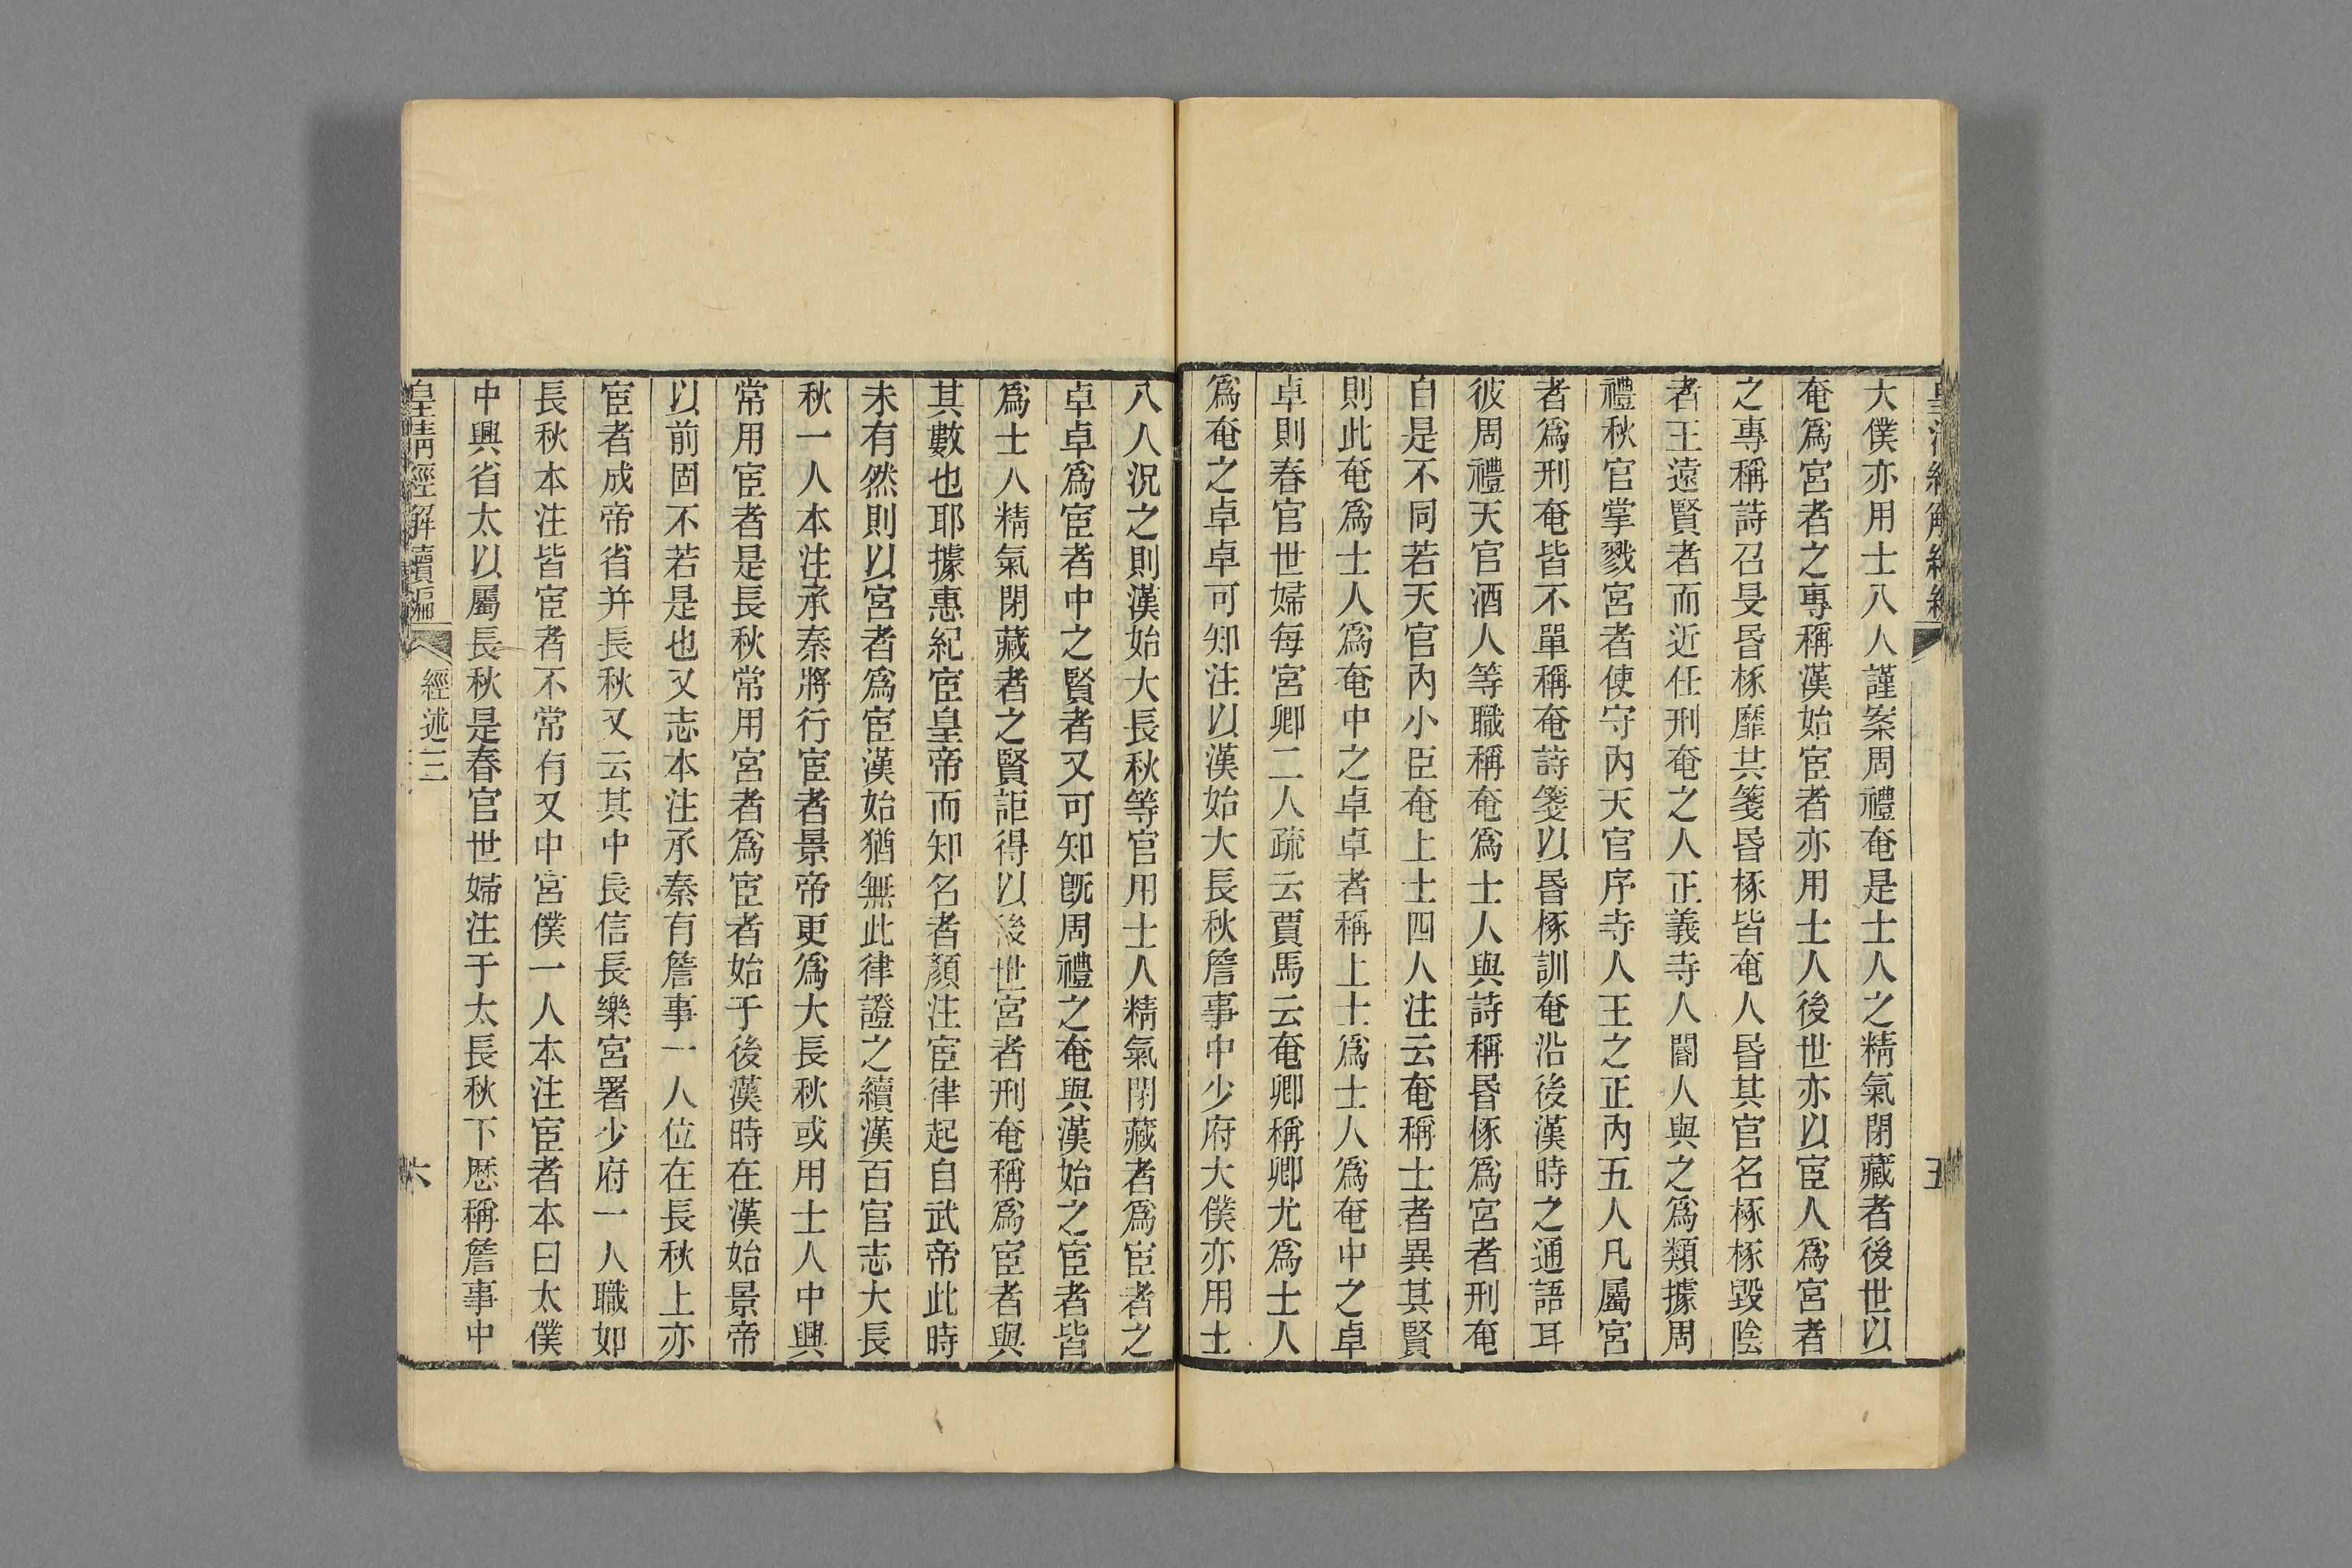 大僕亦用士八人謹案周禮奄是士人之精氣閉藏者後世以
奄爲宮者之專稱漢始宦者亦用士人後世亦以宦人爲宮者
之專稱詩召旻昬椓靡共箋昬椓皆奄人昬其官名椓椓毀陰
者王遠賢者而近任刑奄之人正義寺人閽人與之爲類據周
禮秋官掌戮宮者使守內天官序寺人王之正內五人凡屬宮
者爲刑奄皆不單稱奄詩箋以昬椓訓奄沿後漢時之通語耳
彼周禮天官酒人等職稱奄爲士人與詩稱昬椓爲宮者刑奄
自是不同若天官內小臣奄上士四人注云奄稱士者異其賢
則此奄爲士人爲奄中之卓卓者稱上士爲士人爲奄中之卓
卓則春官世婦每宮卿二人疏云賈馬云奄卿稱卿尤爲士人
爲奄之卓卓可知注以漢始大長秋詹事中少府大僕亦用士
八人況之則漢始大長秋等官用士人精氣閉藏者爲宦者之
卓卓爲宦者中之賢者又可知旣周禮之奄與漢始之宦者皆
爲士人精氣閉藏者之賢詎得以後世宮者刑奄稱爲宦者與
其數也耶據惠紀宦皇帝而知名者顏注宦律起自武帝此時
未有然則以宮者爲宦漢始猶無此律證之續漢百官志大長
秋一人本注承秦將行宦者景帝更爲大長秋或用士人中興
常用宦者是長秋常用宮者爲宦者始于後漢時在漢始景帝
以前固不若是也又志本注承秦有詹事一人位在長秋上亦
宦者成帝省幷長秋又云其中長信長樂宮署少府一人職如
長秋本注皆宦者不常有又中宮僕一人本注宦者本曰太僕
中興省太以屬長秋是春官世婦注于太長秋下歷稱詹事中
皇淸經解續編
經述三
六